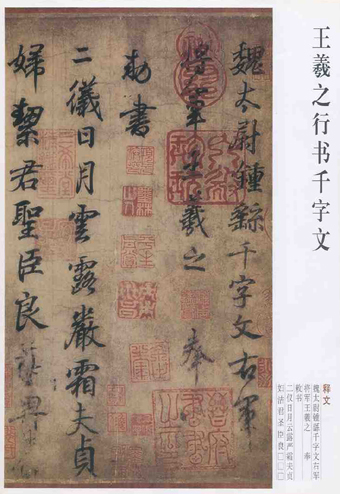 王羲之行书千字文
魏太尉鍾繇千字文右軍
將軍王羲之奉
勅書
二儀日月雲露嚴霜夫貞
婦絜君聖臣良
释文
魏太尉钟繇千字文右军
将军王羲之 奉
敕书
二仪日月云露严霜夫贞
妇洁君圣臣良□□□